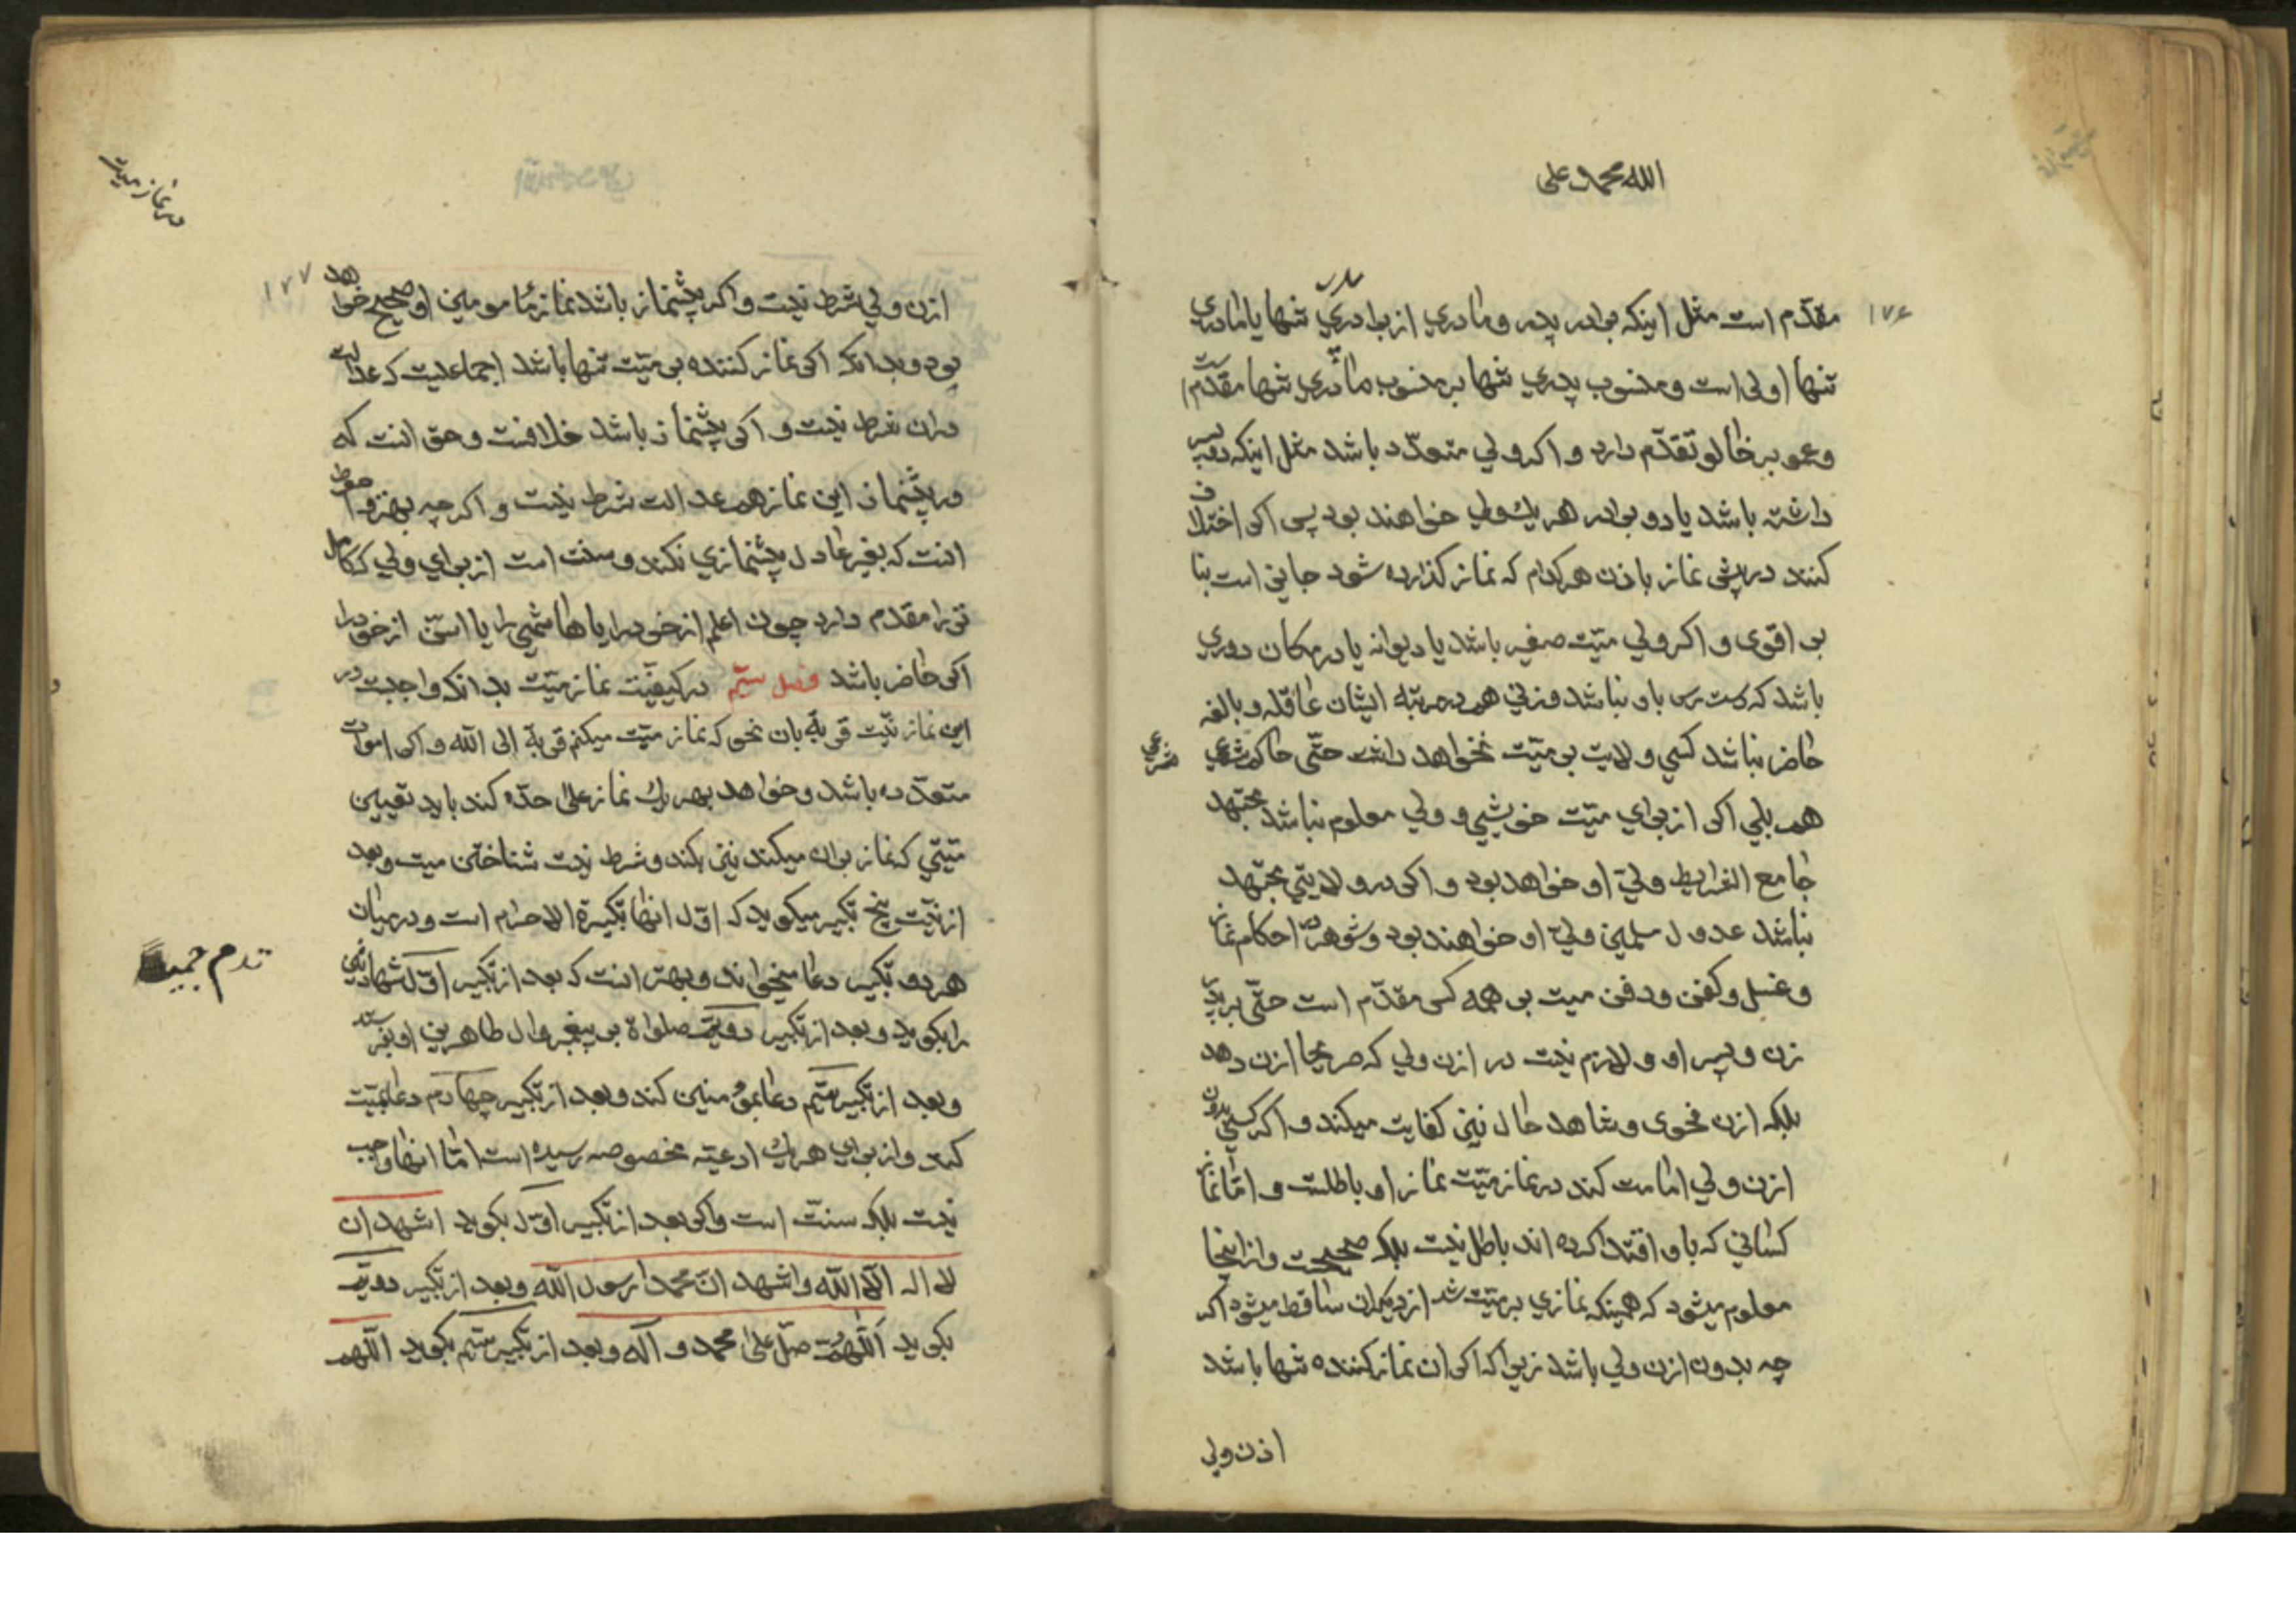 الله محمد علی
۱۷۶
مقدّم است مثل اینکه برادر پدر و مادري از برادر پدري تنها یا مادري
تنها اولی است و منسوب پدري تنها بر منسوب مادري تنها مقدّم است
و عمو بر خالو تقدّم دارد و اکر ولي متعدّد باشد مثل اینکه دو پسر
داشته باشد یا دو برادر هر یك ولي خواهند بود پس اکر اختلاف
کنند در پیش نماز باذن هر کدام که نماز کذارده شود جایز است بنا
بر اقوی و اکر ولي میّت صغیر باشد یا دیوانه یا در مکان دوري
باشد که دست رس باو نباشد و زني هم در مرتبه ایشان عاقله و بالغه
حاضر نباشد کسي ولایت بر میّت نخواهد داشت حتّی حاکم شرعي
شرعي
هم بلي اکر از براي میّت خویشي و ولي معلوم نباشد مجتهد
جامع الشرایط وليّ او خواهد بود و اکر در ولایتي مجتهد
نباشد عدول مسلمین وليّ او خواهند بود و شوهر در احکام نماز
و غسل و کفن و دفن میت بر همه کس مقدّم است حتّی بر پدر
زن و پسر او و لازم نیست در اذن ولي که صریحا اذن دهد
بلکه اذن فحوی و شاهد حال نیز کفایت میکند و اکر کسي بدون
اذن ولي امامت کند در نماز میّت نماز او باطلست و امّا نماز
کساني که باو اقتدا کرده اند باطل نیست بلکه صحیحست و از اینجا
معلوم میشود که همینکه نمازي بر میّت شد از دیکران ساقط میشود اکر
چه بدون اذن ولي باشد زیرا که اکر ان نماز کننده تنها باشد
اذن ولي
در نماز میت
۱۷۷
اذن ولي شرط نیست و اکر پیشنماز باشد نماز مامومین او صحیح خواهد
بود و بدانکه اکر نماز کننده بر میّت تنها باشد اجماعیست که عدالت
دران شرط نیست و اکر پیشنماز باشد خلافست و حق انست که
در پیشنماز این نماز هم عدالت شرط نیست و اکر چه بهتر و احوط
انست که بغیر عادل پیشنمازي نکند و سنت است از براي ولي که کامل
تر را مقدم دارد چون اعلم از خود را یا هاشمي را یا اسنّ از خود را
اکر حاضر باشد فصل سیّم در کیفیّت نماز میّت بدانکه واجبست در
این نماز نیّت قربة بان نحو که نماز میّت میکنم قربة الی الله و اکر اموات
متعدّده باشد و خواهد بهر یك نماز علی حدّه کند باید تعیین
میّتي که نماز بران میکند نیز بکند و شرط نیست شناختن میت و بعد
از نیّت پنج تکبیر میکوید که اوّل انها تکبیرة الاحرام است و در میان
هر دو تکبیر دعا میخواند و بهتر انست که بعد از تکبیر اوّل شهادتین
را بکوید و بعد از تکبیر دویّم صلواة بر پیغمبر و ال طاهرین او بفرستد
و بعد از تکبیر سیّم دعا بمؤمنین کند و بعد از تکبیر چهارم دعا بمیّت
کند و از براي هر یك ادعیّه مخصوصه رسیده است امّا انها واجب
نیست بلکه سنّت است و اکر بعد از تکبیر اوّل بکوید اشهد ان
لا اله الّا الله و اشهد انّ محمدا رسول الله و بعد از تکبیر دویّم
بکوید اللّهمّ صلّ علی محمد و آله و بعد از تکبیر سیّم بکوید اللّهم